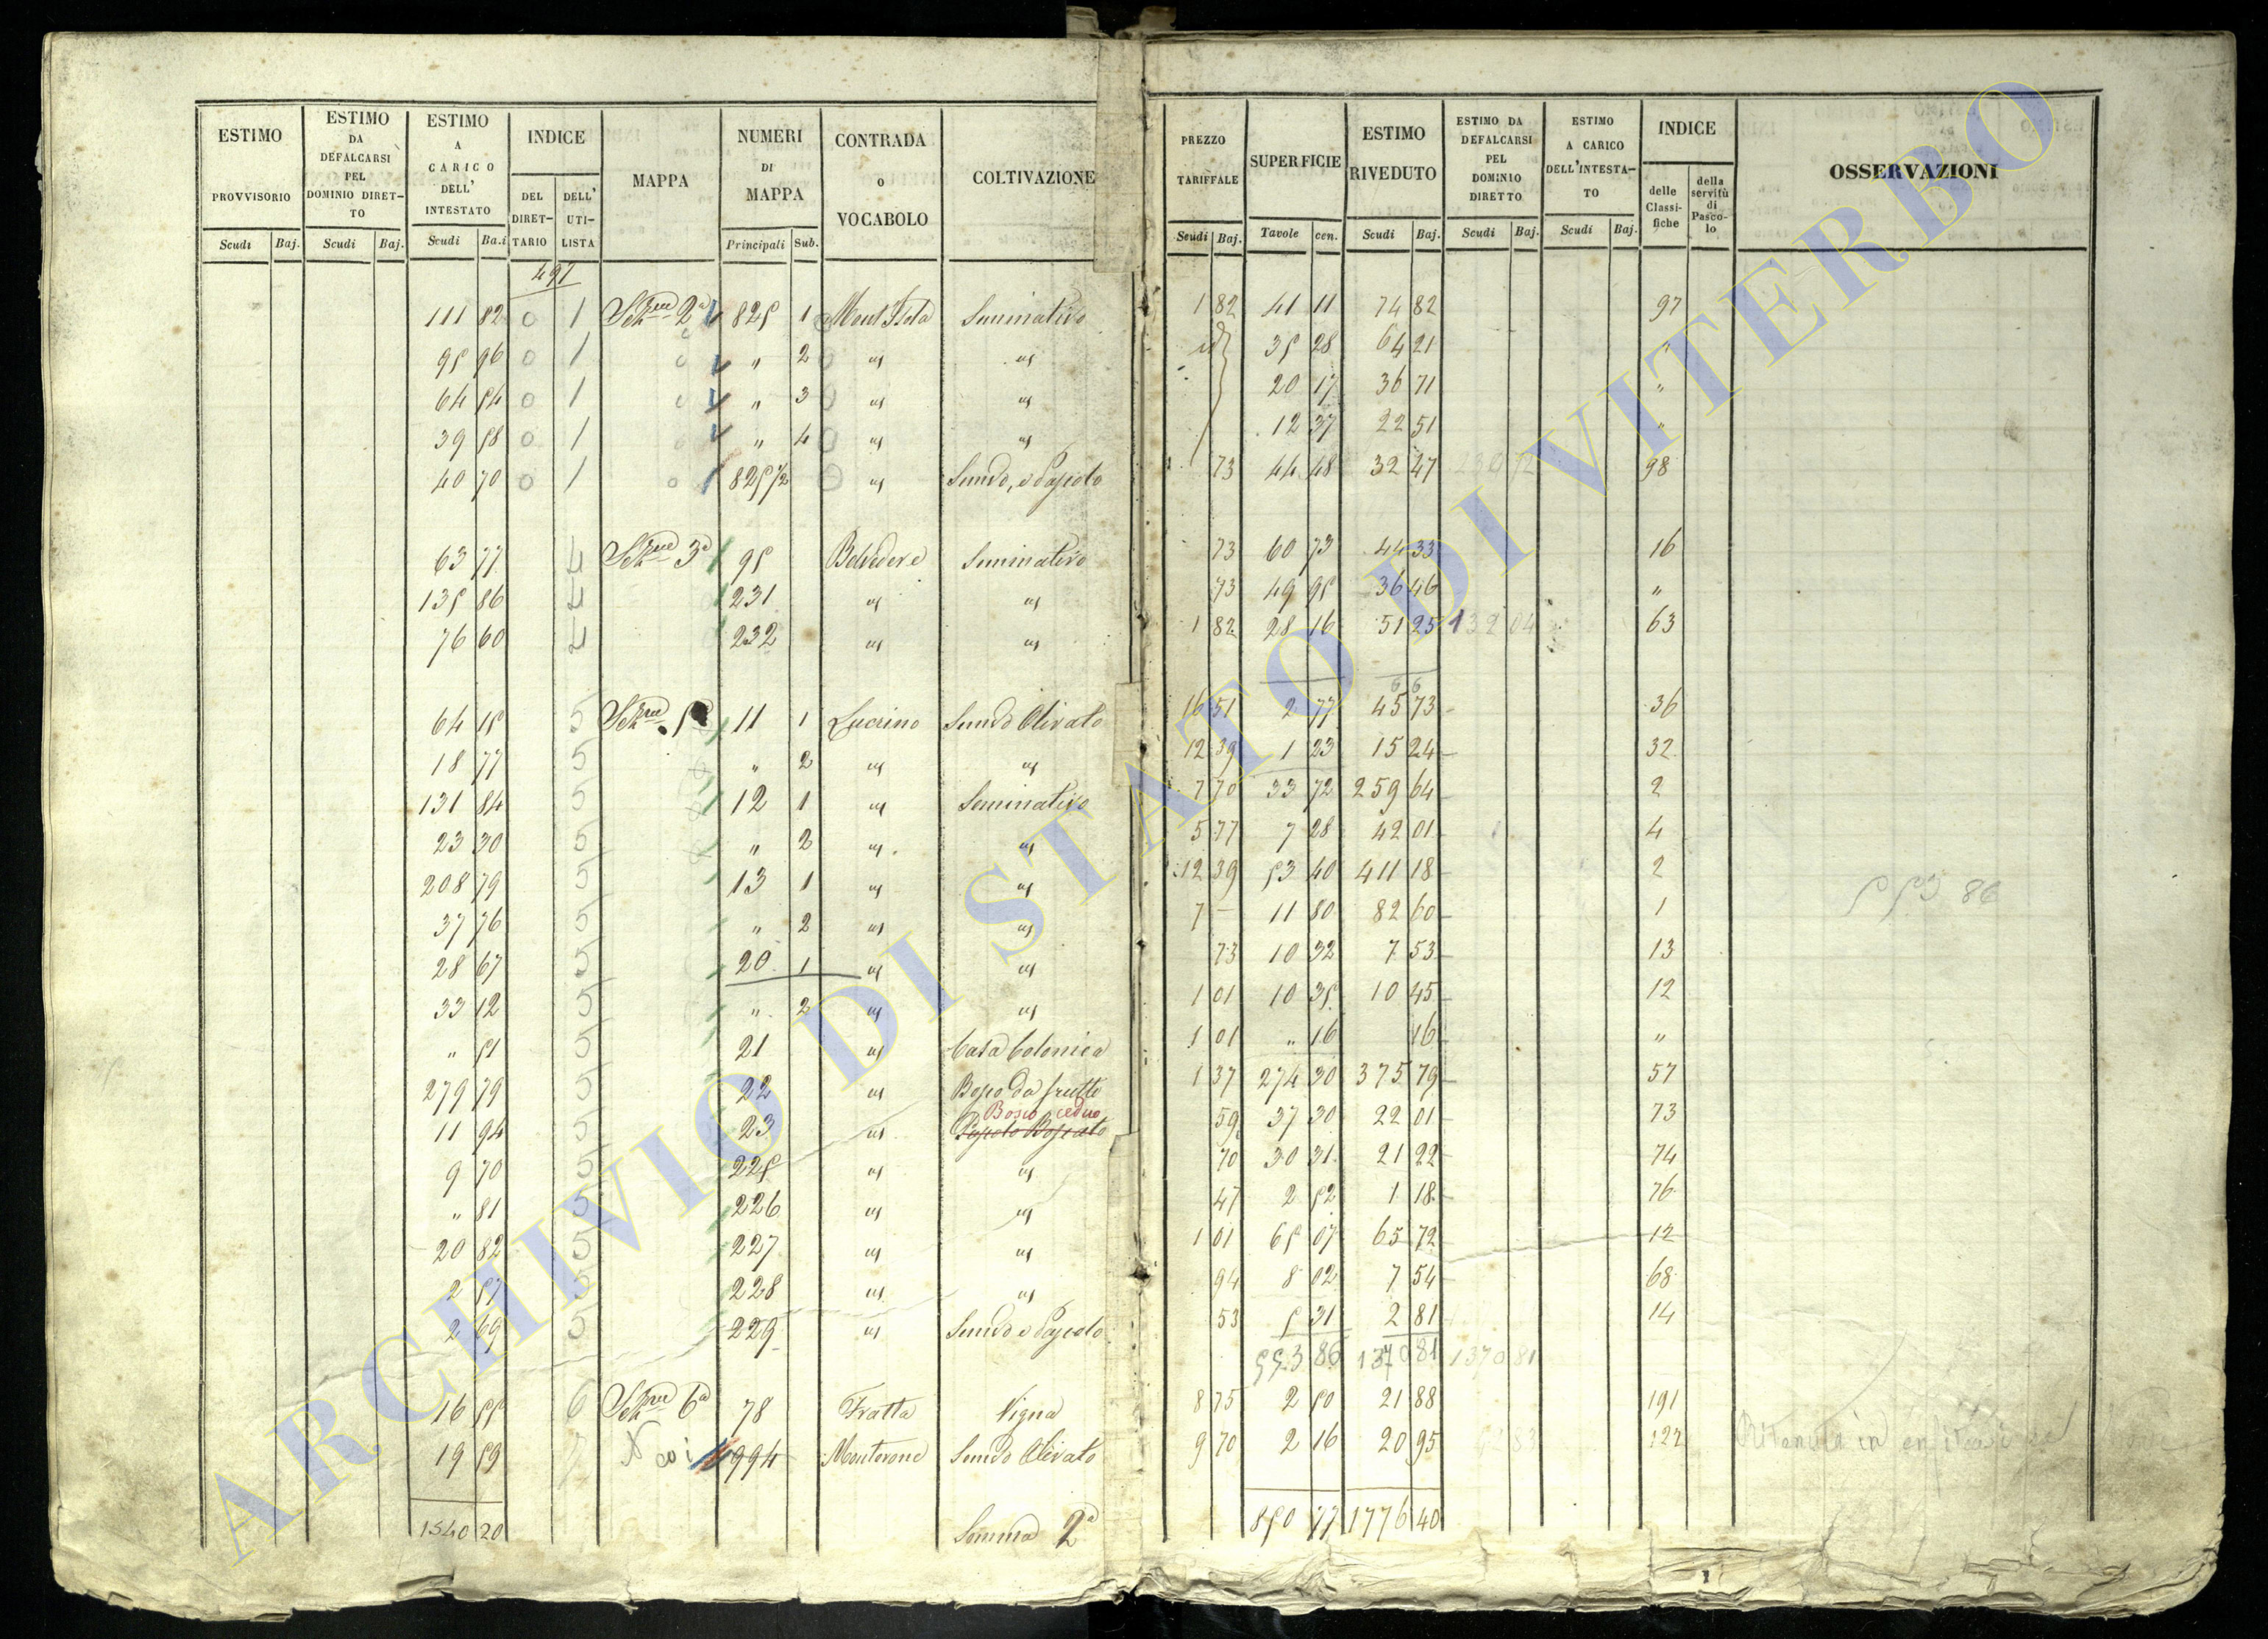 ESTIMO PROVVISORIO Scudi Baj.
ESTIMO DA DEFALCARSI PEL DOMINIO DIRETTO Scudi Baj.
ESTIMO A CARICO DELL' INTESTATO Scudi Ba.i
INDICE DEL DIRETTARIO DELL' UTILISTA
MAPPA
NUMERI DI MAPPA Principali Sub.
CONTRADA O VOCABOLO
COLTIVAZIONE
PREZZO TARIFFALE Scudi Baj.
SUPERFICIE Tavole cen.
ESTIMO RIVEDUTO Scudi Baj.
ESTIMO DA DEFALCARSI PEL DOMINIO DIRETTO Scudi Baj.
ESTIMO A CARICO DELL'INTESTATO Scudi Baj.
INDICE delle Classifiche della servitù di Pascolo
OSSERVAZIONI
497
111 82 0 1 Sez.ne 2a 825 1 Seminativo 1 82 41 11 74 82 97
95 96 0 1 " 2 id id id 35 28 64 21 "
64 54 0 1 " 3 id id 20 17 36 71 "
39 58 0 1 " 4 id id 12 37 22 51 "
40 70 0 1 825 1/2 id Semvo, e Pascolo 73 44 48 32 47 98
63 77 4 Sez.ne 3a 95 Belvedere Seminativo 73 60 73 44 33 16
135 86 4 231 id id 73 49 95 36 46 "
76 60 4 232 id id 1 82 28 16 51 25 132 04 63
64 15 5 Sez.ne 5a 11 1 Lucrino Semvo Olivato 16 51 2 77 45 73 36
18 77 5 " 2 id id 12 39 1 23 15 24 32
131 84 5 12 1 id Seminativo 7 70 33 72 259 64 2
23 30 5 " 2 id id 5 77 7 28 42 01 4
208 79 5 13 1 id id 12 39 53 40 411 18 2
37 76 5 " 2 id id 7 – 11 80 82 60 1
553 86
28 67 5 20 1 id id 73 10 32 7 53 13
33 12 5 " 2 id id 1 01 10 35 10 45 12
" 51 5 21 id Casa Colonica 1 01 " 16 16 "
279 79 5 22 id Bosco da frutto 1 37 274 30 375 79 57
Bosco ceduo
11 94 5 23 id Pascolo Boscato 59 37 30 22 01 73
9 70 5 225 id id 70 30 31 21 22 74
" 81 5 226 id id 47 2 52 1 18 76
20 82 5 227 id id 1 01 65 07 65 72 12
2 57 5 228 id id 94 8 02 7 54 68
2 69 5 229 id Semvo e Pascolo 53 5 31 2 81 14
553 86 1370 81 1370 81
16 55 6 Sez.ne 6a 78 Fratta Vigna 8 75 2 50 21 88 191
19 59 994 Monterone Semvo Olivato 9 70 2 16 20 95 122 Ritenuta in enfiteusi
1540 20 Somma 2a 850 77 1776 40
ARCHIVIO DI STATO DI VITERBO